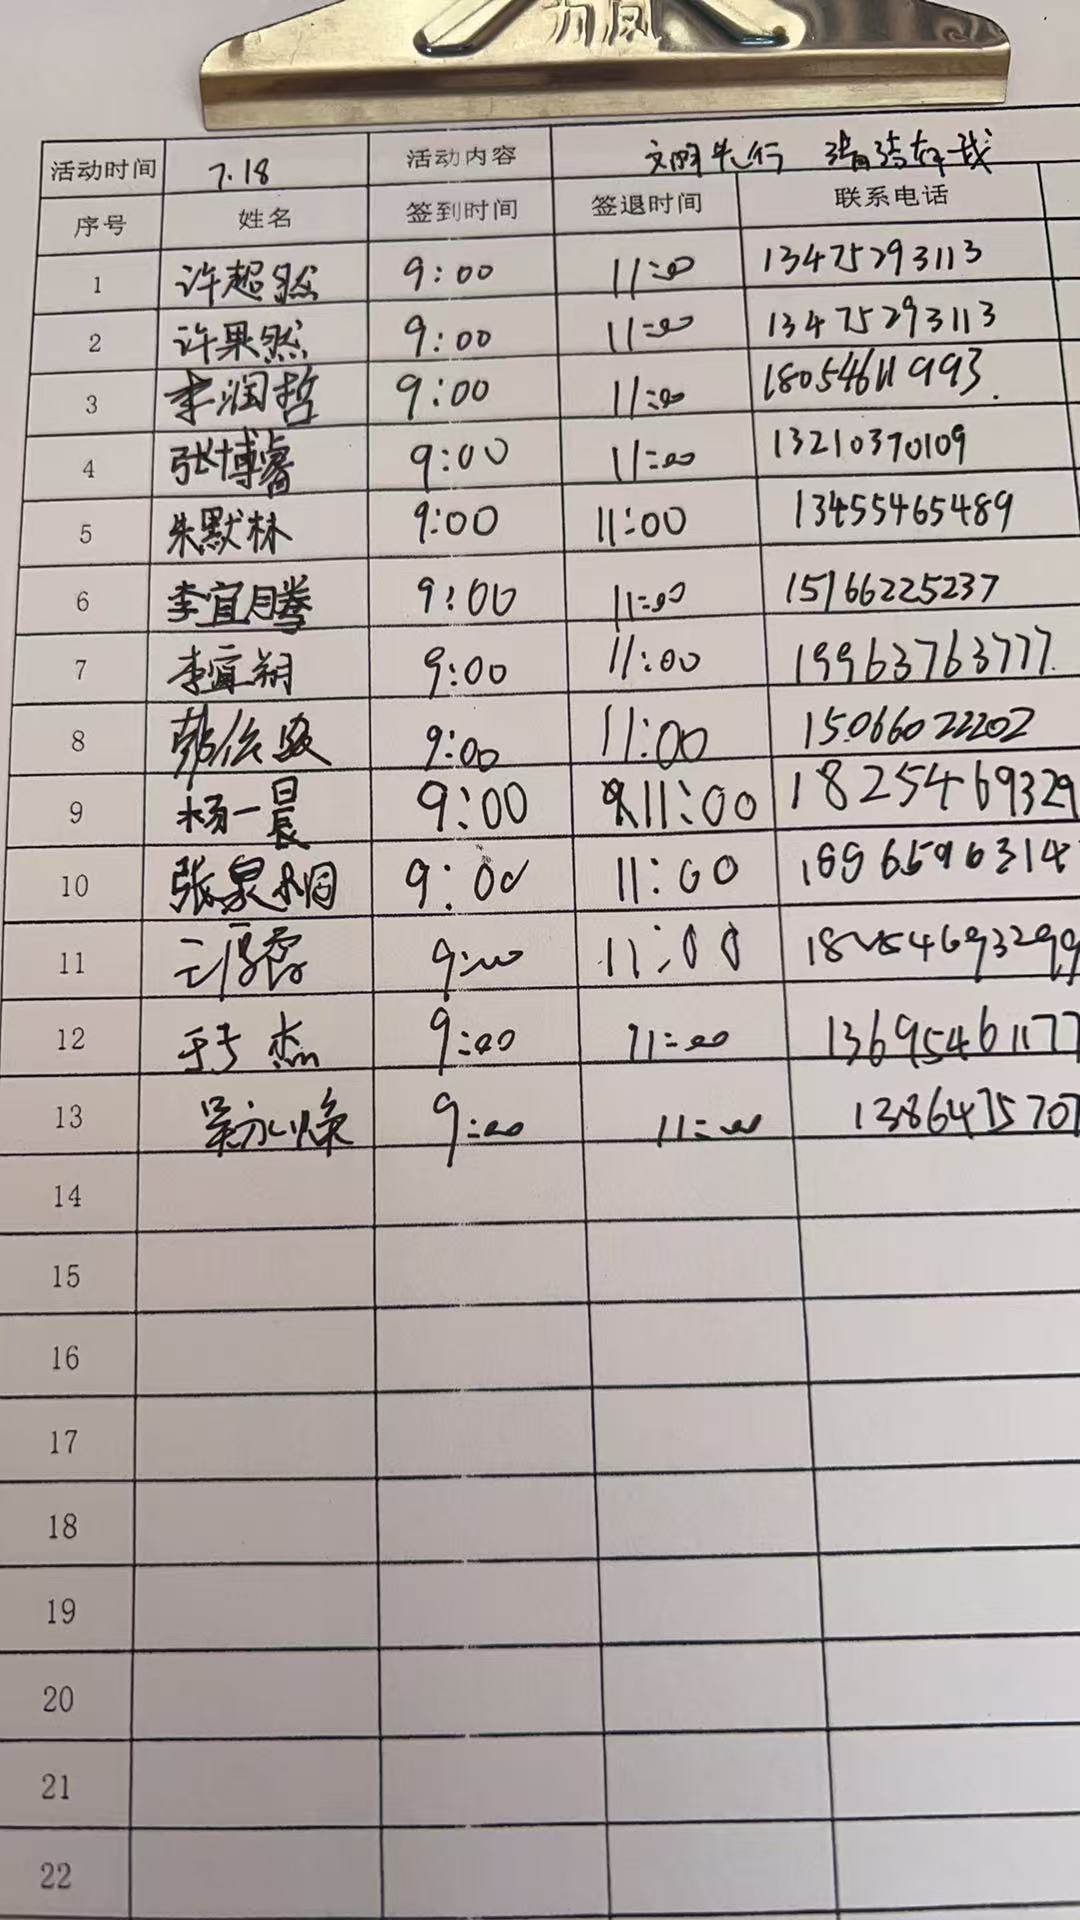 力凤
活动时间 7.18 活动内容 文明先行
序号 姓名 签到时间 签退时间 联系电话
1 许超然 9:00 11:00 13475293113
2 许果然 9:00 11:00 13475293113
3 李润哲 9:00 11:00 18054611993.
4 张博睿 9:00 11:00 13210370109
5 朱默林 9:00 11:00 13455465489
6 李宜腾 9:00 11:00 15166225237
7 李宜朔 9:00 11:00 19963763777
8 9:00 11:00 15066022202
9 杨一晨 9:00 11:00 1825469329
10 张泉桐 9:00 11:00
11 9:00 11:00 18254693299
12 于杰 9:00 11:00 13695461177
13 吴永焕 9:00 11:00 1386475707
14
15
16
17
18
19
20
21
22